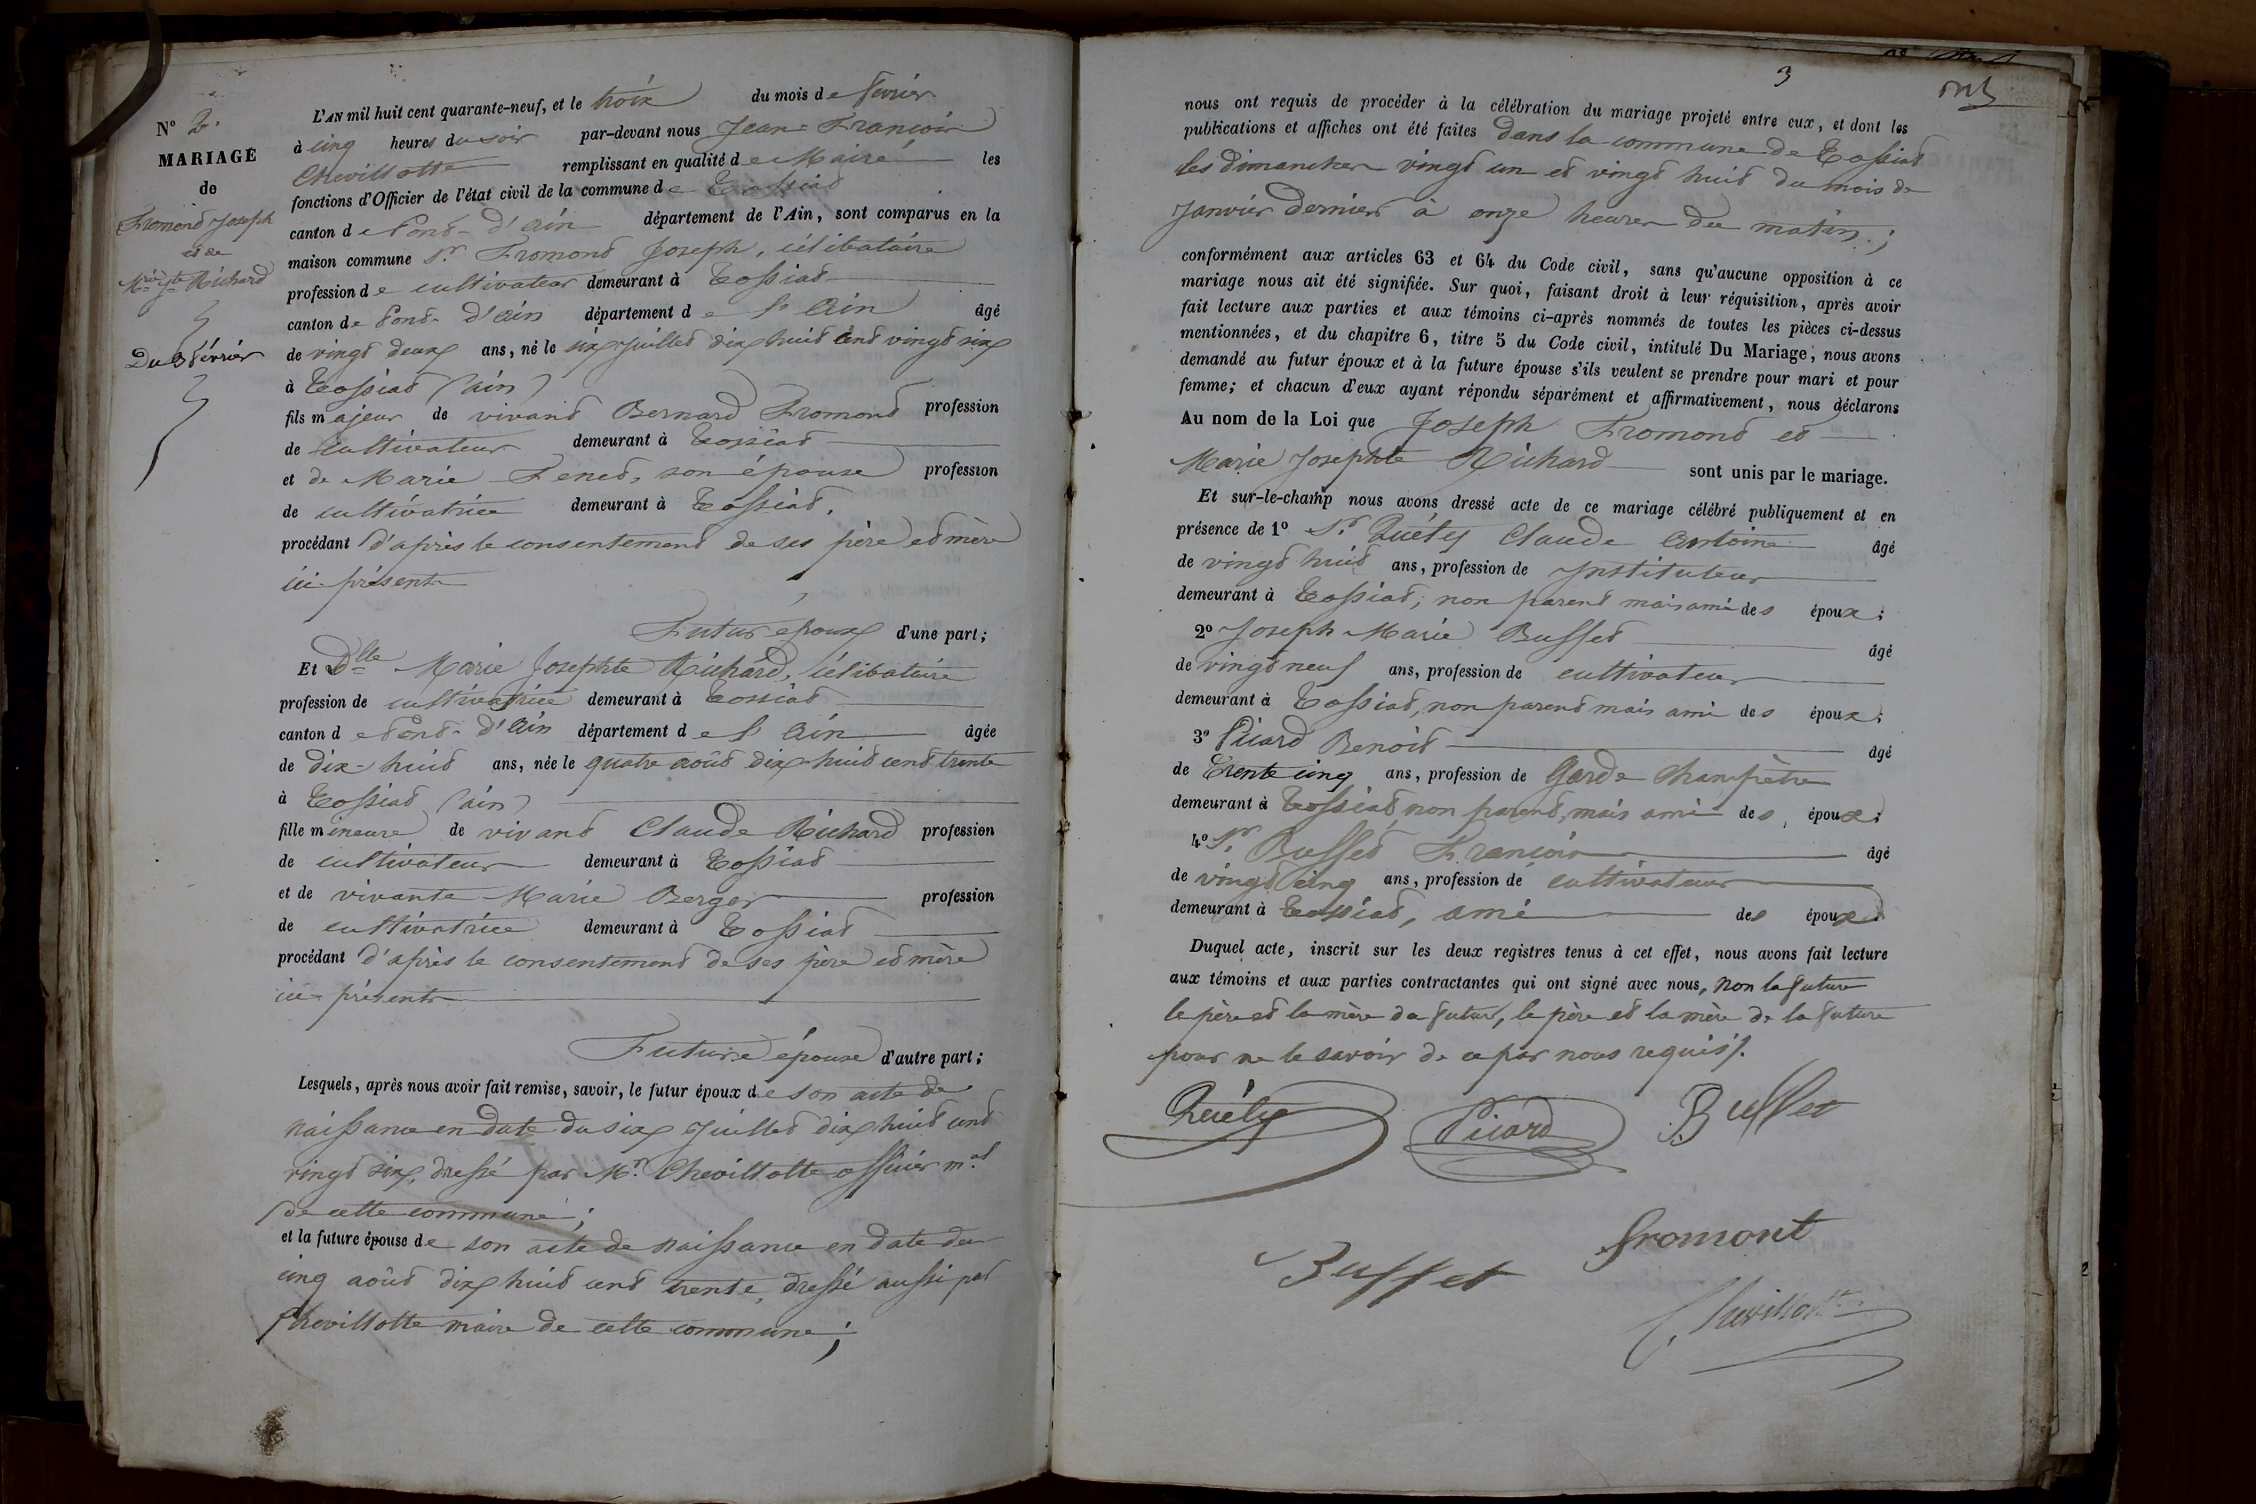 N° 2.
MARIAGE
de
Fromond Joseph
et de
Mie Jte Richard
Du 3 février
L'AN mil huit cent quarante-neuf, et le trois du mois de février
à cinq heures du soir par-devant nous Jean François
Chevillotte remplissant en qualité de Maire les
fonctions d'Officier de l'état civil de la commune de Tossiat
canton de Pont-d'ain département de l'Ain, sont comparus en la
maison commune Sr. Fromond Joseph, célibataire
profession de cultivateur demeurant à Tossiat
canton de Pont-d'ain département de l'Ain âgé
de vingt deux ans, né le six juillet dix huit cent vingt six
à Tossiat (ain)
fils majeur de vivant Bernard Fromond profession
de cultivateur demeurant à Tossiat
et de Marie Fenet, son épouse profession
de cultivatrice demeurant à Tossiat,
procédant d'après le consentement de ses père et mère
ici présents
Futur époux d'une part;
Et Dlle Marie Josephte Richard, célibataire
profession de cultivatrice demeurant à Tossiat
canton de Pont-d'Ain département de l'Ain âgée
de dix-huit ans, née le quatre août dix-huit cent trente
à Tossiat (ain)
fille mineure de vivant Claude Richard profession
de cultivateur demeurant à Tossiat
et de vivante Marie Berger profession
de cultivatrice demeurant à Tossiat
procédant d'après le consentement de ses père et mère
ici présents
Future épouse d'autre part;
Lesquels, après nous avoir fait remise, savoir, le futur époux de son acte de
naissance en date du six juillet dix huit cent
vingt six, dressé par Mr. Chevillotte officier mal
de cette commune;
et la future épouse de son acte de naissance en date du
cinq août dix huit cent trente, dressé aussi par
Chevillotte maire de cette commune;
3
nous ont requis de procéder à la célébration du mariage projeté entre eux, et dont les
publications et affiches ont été faites dans la commune de Tossiat
les dimanches vingt un et vingt huit du mois de
Janvier dernier à onze heures du matin;
conformément aux articles 63 et 64 du Code civil, sans qu'aucune opposition à ce
mariage nous ait été signifiée. Sur quoi, faisant droit à leur réquisition, après avoir
fait lecture aux parties et aux témoins ci-après nommés de toutes les pièces ci-dessus
mentionnées, et du chapitre 6, titre 5 du Code civil, intitulé Du Mariage, nous avons
demandé au futur époux et à la future épouse s'ils veulent se prendre pour mari et pour
femme; et chacun d'eux ayant répondu séparément et affirmativement, nous déclarons
Au nom de la Loi que Joseph Fromond et
Marie Josephte Richard sont unis par le mariage.
Et sur-le-champ nous avons dressé acte de ce mariage célébré publiquement et en
présence de 1° Sr. Quéty Claude Antoine âgé
de vingt huit ans, profession de Instituteur
demeurant à Tossiat, non parent mais ami des époux;
2° Joseph Marie Buffet âgé
de vingt neuf ans, profession de cultivateur
demeurant à Tossiat, non parent mais ami des époux;
3° Picard Benoit âgé
de trente cinq ans, profession de Garde Champêtre
demeurant à Tossiat non parent, mais ami des époux;
4° Sr. Buffet François âgé
de vingt cinq ans, profession de cultivateur
demeurant à Tossiat, ami des époux.
Duquel acte, inscrit sur les deux registres tenus à cet effet, nous avons fait lecture
aux témoins et aux parties contractantes qui ont signé avec nous, non la future
le père et la mère du futur, le père et la mère de la future
pour ne le savoir de ce par nous requis.
Quéty
Picard
Buffet
Buffet
fromont
Chevillotte